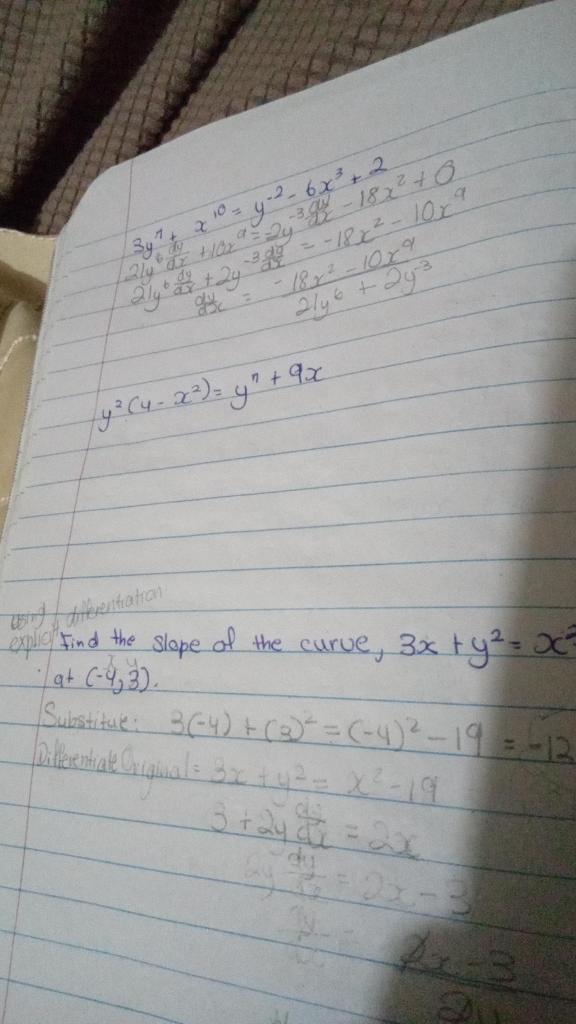 3y⁷ + x¹⁰ = y⁻² - 6x³ + 2
21y⁶ dy/dx + 10x⁹ = -2y⁻³ dy/dx - 18x² + 0
21y⁶ dy/dx + 2y⁻³ dy/dx = -18x² - 10x⁹
dy/dx = - 18x² - 10x⁹ / 21y⁶ + 2y⁻³
y²(4 - x²) = y⁷ + 9x
using differentiation
explicit Find the slope of the curve, 3x + y² = x²
x y
at (-4, 3).
Substitue: 3(-4) + (3)² = (-4)² - 19 = -12
Differentiate Original = 3x + y² = x² - 19
3 + 2y dy/dx = 2x
2y dy/dx = 2x - 3
dy/dx = 2x - 3 / 2y